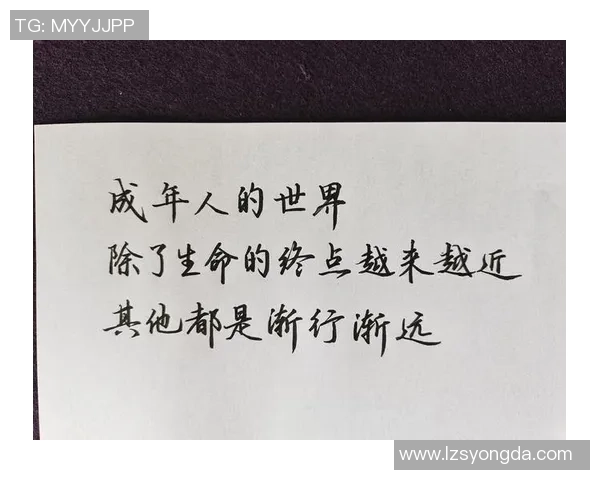 TG: MYYJJPP
成年人的世界
除了生命的终点越来越近
其他都是渐行渐远
www.lzsyongda.com